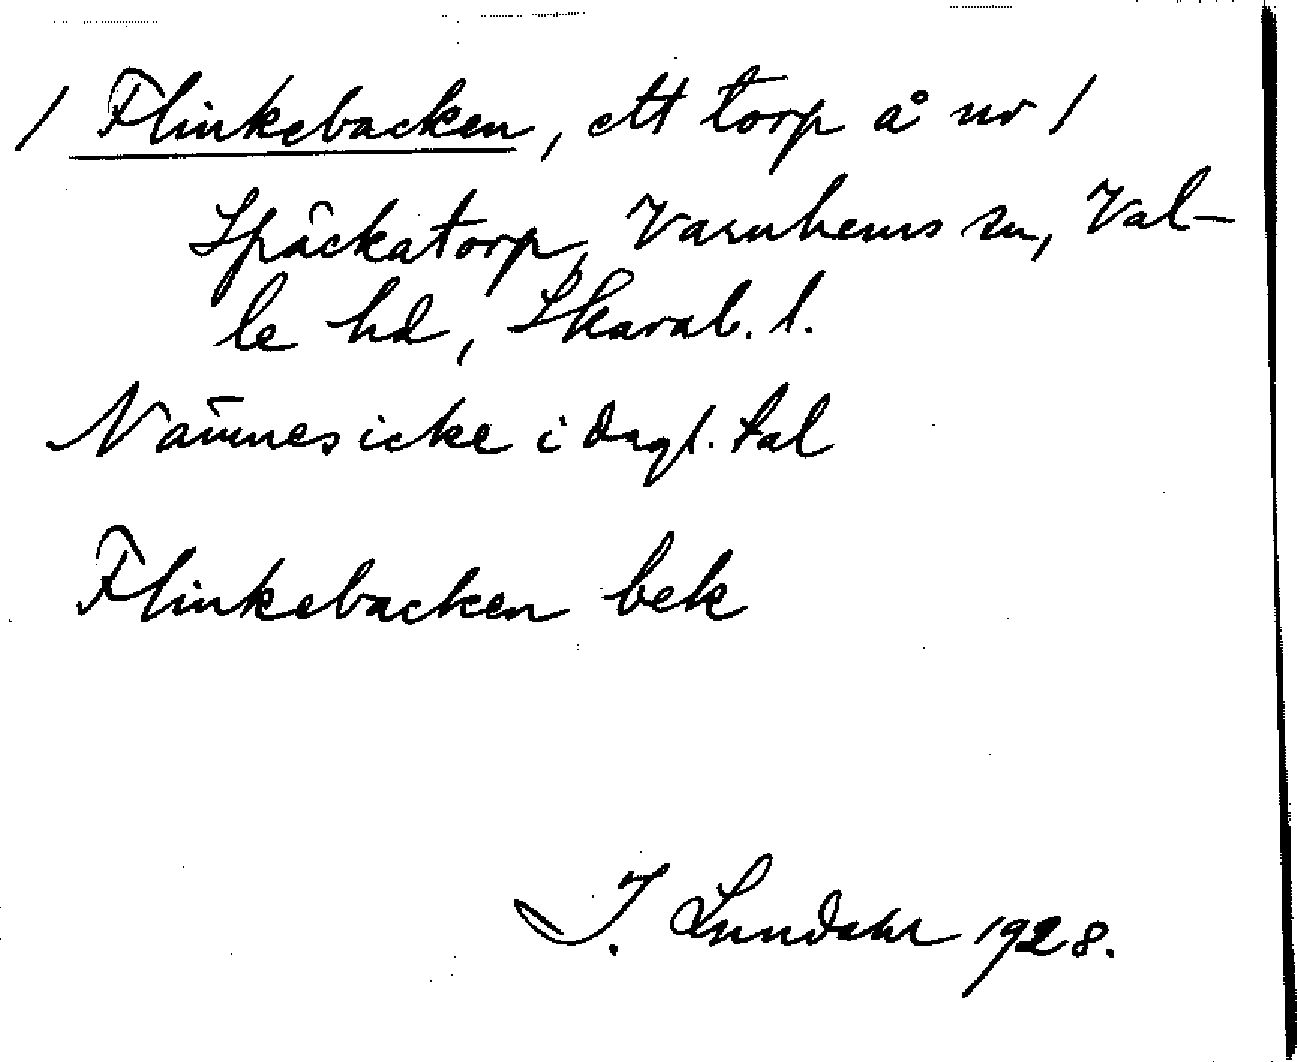 / Flinkebacken, ett torp å nr 1
Späckatorp, Varnhems sn, Val-
le hd, Skarab. l.
Nämnes icke i dagl. tal
Flinkebacken bek
I. Lundahl 1928.